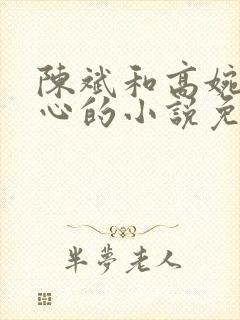 陳斌和高婉
心的小說免
半夢老人